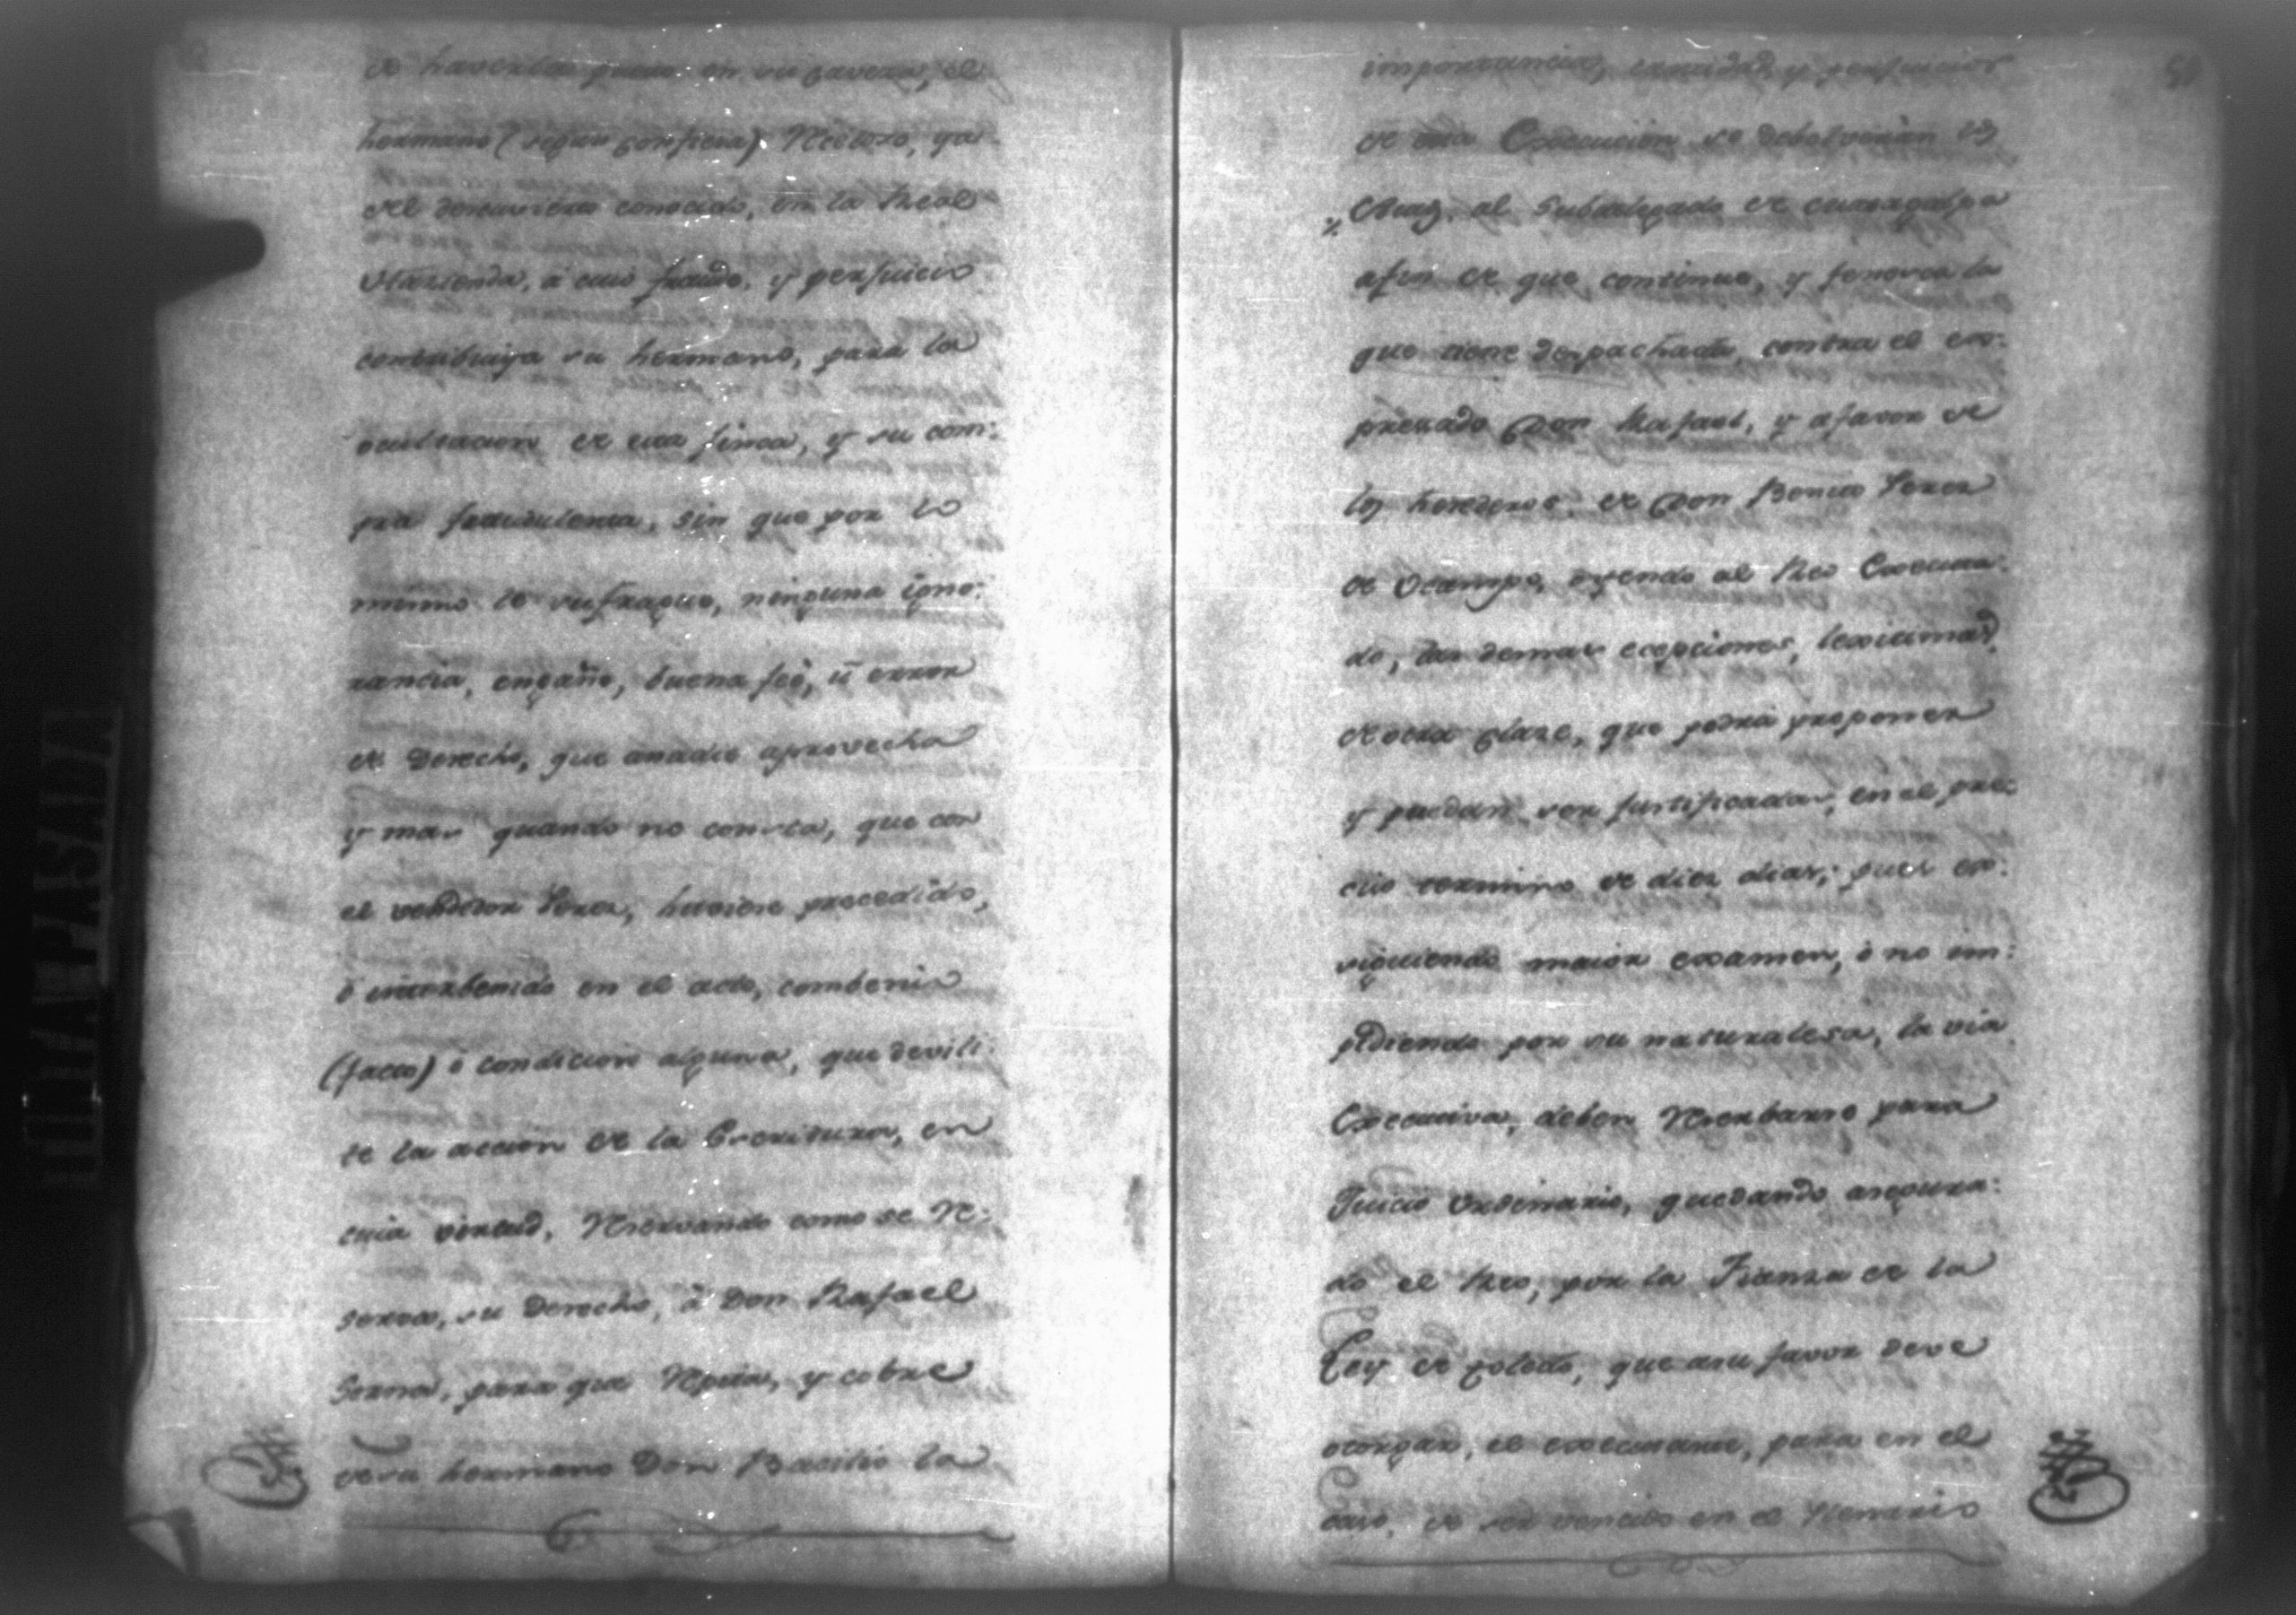 de haverla puesto en su cavera, el
hermano (segun confiesa) Receloso, ya
del descuvierto conocido, en la Real
Hazienda, à cuio fraude, y perjuicio
contribuiya su hermano, para la
ocultacion de esa finca, y su com:
pra fraudulenta, sin que por lo
mismo le sufrague, ninguna igno:
rancia, engaño, buena feè, ù error
de Derecho, que anadie aprovecha
y mas quando no consta, que con
el vendedor Perez, huviese precedido,
ò interbenido en el acto, combenio
(pacto) ò condicion alguna, que devili:
te la accion de la Escritura, en
cuia virtud, Reservando como se Re:
serva, su Derecho, à Don Rafael
Serna, para que Repita, y cobre
de su hermano Don Basilio la
importancia, cantidad, y perjuicios
de esta Execucion se debolverán los
Autos. al Subdelegado de
afin de que continue, y fenesca la
que tiene despachada, contra el ex:
presado Don Rafael, y afavor de
los herederos de Don Benito Perez
de Ocampo, oyendo al Reo Executa:
do, las demas ecepciones, lexitimas,
de otra clase, que podrá proponer
y puedan ser justificadas, en el pre:
ciso termino de diez dias; pues ex:
siguiendo maior examen, ò no im:
pidiendo por su naturalesa, la via
Executiva, deben Reserbarse para
Juicio Ordinario, quedando asegura:
do el Reo, por la Fianza de la
Ley de Toledo, que asu favor deve
otorgar, el executante, para en el
caso, de ser vencido en el Plenario